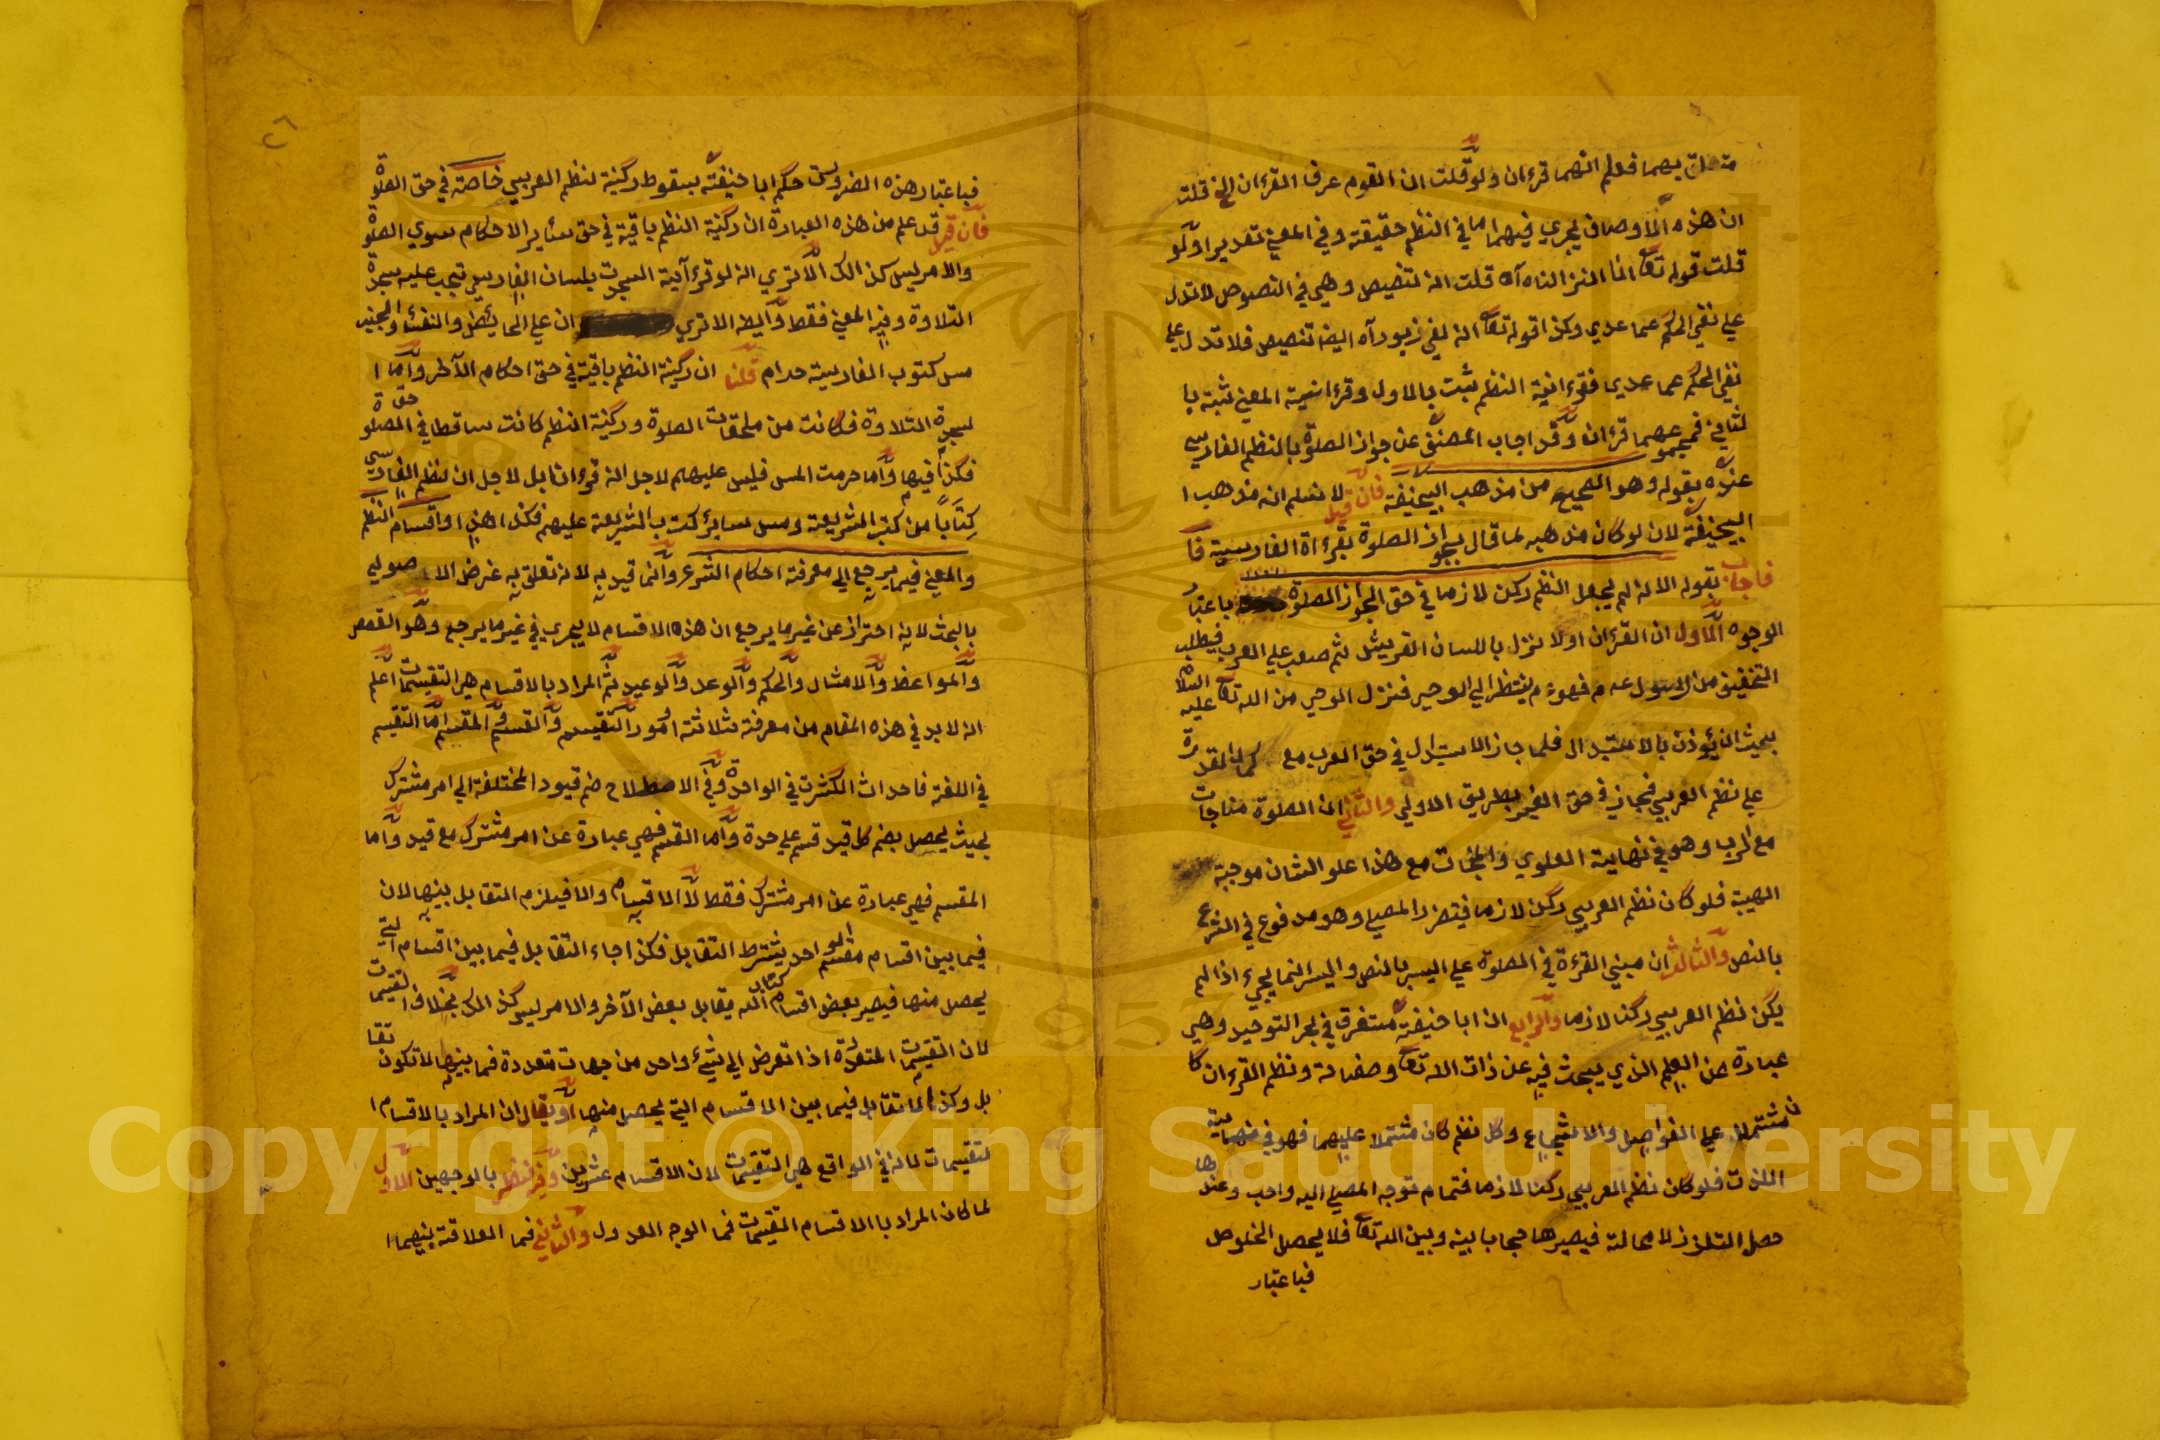 متعلق بهما فعلم انهما قرءان ولو قلت ان القوم عرف القرءان الخ قلت
ان هذه الاوصاف يجري فيهما اما في النظم حقيقة وفي المعني تقديرا ولو
قلت قوله تع انا انزلناه آه قلت انه تنصيص وهي في النصوص لا تدل
علي نفي الحكم عما عدي وكذا قوله تع انه لفي زبور آه ايضا تنصيص فلا تدل علي
نفي الحكم عما عدي فقرءانية النظم ثبت بالاول وقرءانية المعني ثبته با
لثاني فمجموعهما قرءان وقد اجاب المصنف عن جواز الصلوة بالنظم الفارسي
عنده بقوله وهو الصحيح من مذهب ابيحنيفة فان قيل لا نسلم انه مذهب ا
ابيحنيفة لان لو كان مذهبه لما قال بجواز الصلوة بقراءة الفارسية فا
فاجاب بقوله الا انه لم يجعل النظم ركن لازما في حق الجواز الصلوة باعتبار
الوجوه الاول ان القرءان اولا نزل باللسان القريش ثم صعب علي العرب فيطلب
التخفيف من الرسول عم فهو عم ينتظر الي الوحي فنزل الوحي من الله تع عليه السلام
بحيث ان يؤذن بالاستبدال فلما جاز الاستبدال في حق العرب مع كمال القدرة
علي نظم العربي فجاز في حق الغير بطريق الاولي والثاني ان الصلوة مناجات
مع الرب وهو في نهاية العلوي والمناجات مع هذا علو الشان موجبة
الهيبة فلو كان نظم العربي ركن لازما فيتضرر المصلي وهو مدفوع في الشرع
بالنص والثالث ان مبني القرءة في الصلوة علي اليسر بالنص واليسر انما يجيء اذا لم
يكن نظم العربي ركنا لازما والرابع ان اباحنيفة مستغرق في بحر التوحيد وهي
عبارة عن العلم الذي يبحث فيه عن ذات الله تع وصفاته ونظم القرءان كا
ن مشتملا علي الفواصل والاسجاع وكل نظم كان مشتملا عليهما فهو في نهاية
اللذت فلو كان نظم العربي ركنا لازما فتمام توجه المصلي اليه واجب وعندها
حصل التلذذ لا محالة فيصيرها حجابا بينه وبين الله تع فلا يحصل الخلوص
فباعتبار
٢٦
فباعتبار هذه الضرورت حكم اباحنيفة بسقوط ركنية لنظم العربي خاصة في حق الصلوة
فان قيل قد علم من هذه العبارة ان ركنية النظم باقية في حق سائر الاحكام سوي الصلوة
والامر ليس كذالك الاتري انه لو قرء آية السجدت بلسان الفارسي تجب عليه سجدة
التلاوة وفيه المعني فقط وايضا الاتري ان علي الحائض والنفساء والجنب
مس كتوب الفارسية حرام قلنا ان ركنية النظم باقية في حق احكام الآخر واما ا
لسجدة التلاوة فكانت من ملحقات الصلوة وركنية النظم كانت ساقطا في حق الصلوة
فكذا فيها واما حرمت المس فليس عليهم لاجل انه قرءانا بل لاجل ان نظم الفارسي
كتابا من كتب الشريعة ومس سائر كتب الشريعة عليهم فكذا هذا واقسام النظم
والمعني فيما يرجع الي معرفة احكام الشرع وانما قيد به لانه تعلق به غرض الاصولي
بالبحث لانه احتراز عن غير ما يرجع ان هذه الاقسام لا يجري في غير ما يرجع وهو القصص
والمواعظ والامثال والحكم والوعد والوعيد ثم المراد بالاقسام هي التقسيمات اعلم
انه لابد في هذه المقام من معرفة ثلاثة امور التقسيم والقسم والمقسم اما التقسيم
في اللغة فاحداث الكثرت في الواحدة وفي الاصطلاح ضم قيود المختلفة الي امر مشترك
بحيث يحصل بضم كل قيد قسم علي حدة واما القسم فهي عبارة عن امر مشترك مع قيد واما
المقسم فهي عبارة عن امر مشترك فقط لا الاقسام والا فيلزم التقابل بينها لان
فيما بين اقسام مقسم الواحد يشترط التقابل فكذا جاء التقابل فيما بين اقسام التي
يحصل منها فيصير بعض اقسام كتاب الله يقابل بعض الآخر والامر ليس كذالك بخلاف التقسيمات
لان التقسيمات المتعددة اذا تعرض الي شيء واحد من جهات متعددة فما بينها لا تكون تقا
بل وكذا لا تقابل فيما بين الاقسام التي يحصل منها او يقال ان المراد بالاقسام ا
لتقسيمات لانه في الواقع هي التقسيمات لان الاقسام عشرين وفيه نظر بالوجهين الاول
لما كان المراد بالاقسام التقسيمات فما الوجه العدول والثاني فما العلاقة بينهما
Copyright © King Saud University
1957